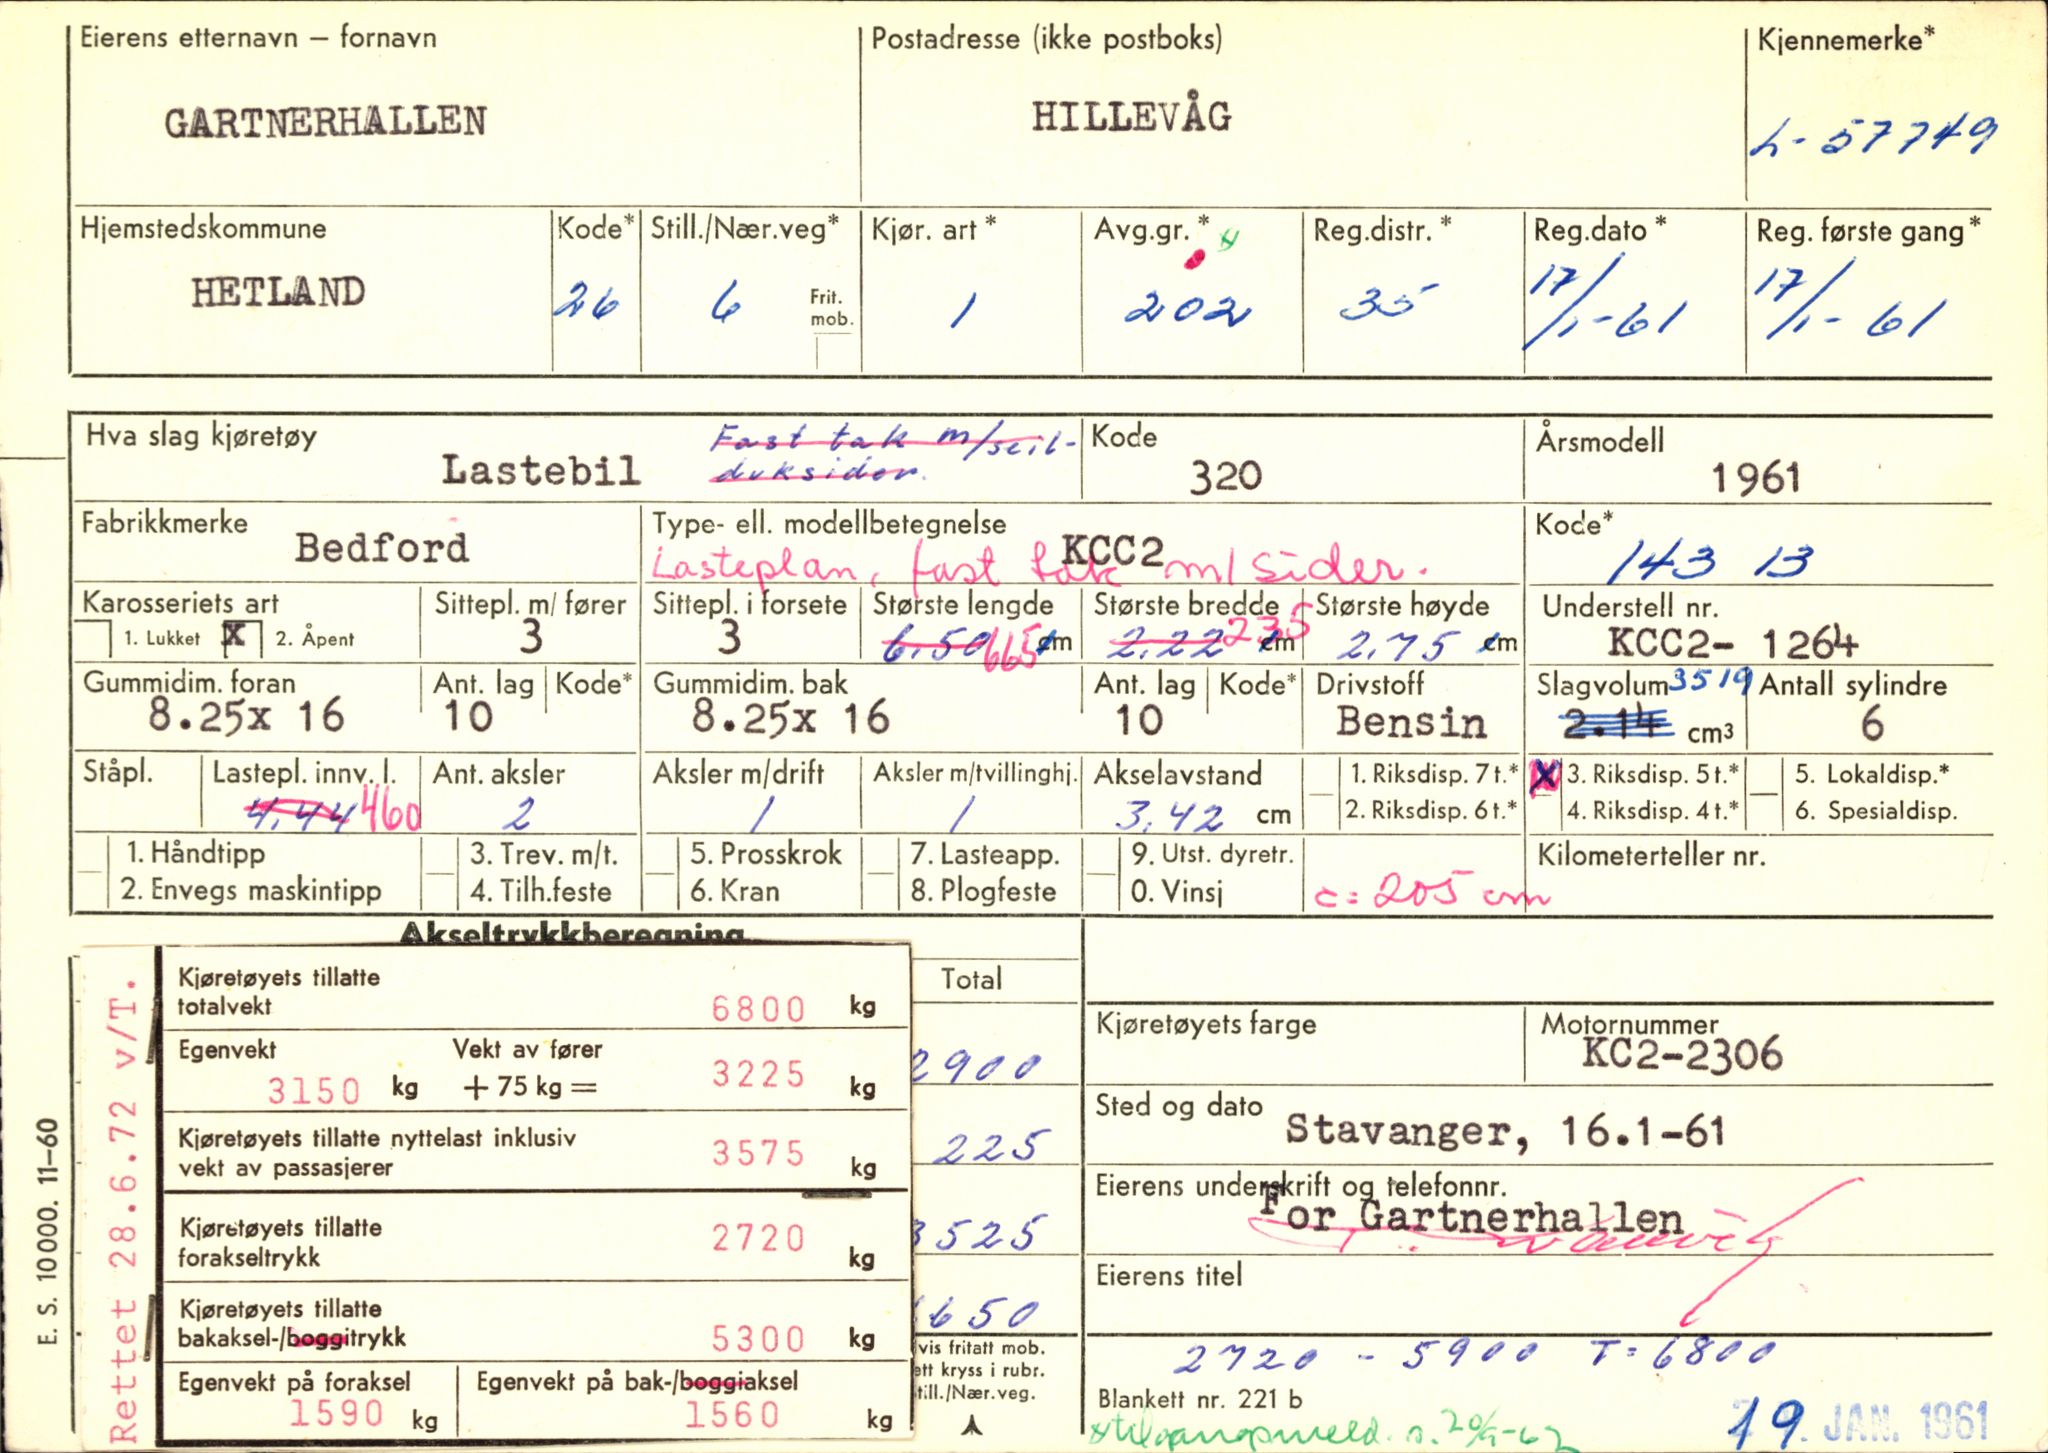 Eierens etternavn – fornavn
GARTNERHALLEN
Postadresse (ikke postboks)
HILLEVÅG
Kjennemerke*
L-57749
Hjemstedskommune
HETLAND
Kode*
26
Still./Nær.veg*
6
Frit. mob.
Kjør. art*
1
Avg.gr.*
202
Reg.distr.*
35
Reg.dato*
17/1-61
Reg. første gang*
17/1-61
Hva slag kjøretøy
Lastebil
Fast tak m/seil-
duksider.
Kode
320
Årsmodell
1961
Fabrikkmerke
Bedford
Type- ell. modellbetegnelse
KCC2
Lasteplan, fast tak m/sider.
Kode*
143 13
Karosseriets art
1. Lukket X 2. Åpent
Sittepl. m/ fører
3
Sittepl. i forsete
3
Største lengde
6.50 665 cm
Største bredde
2.22 235 cm
Største høyde
2.75 cm
Understell nr.
KCC2- 1264
Gummidim. foran
8.25x 16
Ant. lag
10
Kode*
Gummidim. bak
8.25x 16
Ant. lag
10
Kode*
Drivstoff
Bensin
Slagvolum 3519
2.14 cm³
Antall sylindre
6
Ståpl.
Lastepl. innv. l.
4.44 460
Ant. aksler
2
Aksler m/drift
1
Aksler m/tvillinghj.
1
Akselavstand
3.42 cm
1. Riksdisp. 7 t.*
2. Riksdisp. 6 t.*
X 3. Riksdisp. 5 t.*
4. Riksdisp. 4 t.*
5. Lokaldisp.*
6. Spesialdisp.
1. Håndtipp
2. Envegs maskintipp
3. Trev. m/t.
4. Tilh.feste
5. Prosskrok
6. Kran
7. Lasteapp.
8. Plogfeste
9. Utst. dyretr.
0. Vinsj
c = 205 cm
Kilometerteller nr.
Akseltrykkberegning
Total
2900
225
3525
650
vis fritatt mob.
ett kryss i rubr.
till./Nær.veg.
E. S. 10000. 11–60
Rettet 28.6.72 v/T.
Kjøretøyets tillatte
totalvekt 6800 kg
Egenvekt
3150 kg
Vekt av fører
+ 75 kg = 3225 kg
Kjøretøyets tillatte nyttelast inklusiv
vekt av passasjerer 3575 kg
Kjøretøyets tillatte
forakseltrykk 2720 kg
Kjøretøyets tillatte
bakaksel-/boggitrykk 5300 kg
Egenvekt på foraksel
1590 kg
Egenvekt på bak-/boggiaksel
1560 kg
Kjøretøyets farge
Motornummer
KC2-2306
Sted og dato
Stavanger, 16.1-61
Eierens underskrift og telefonnr.
For Gartnerhallen
Eierens titel
2720 - 5900 T= 6800
Blankett nr. 221 b
19. JAN. 1961